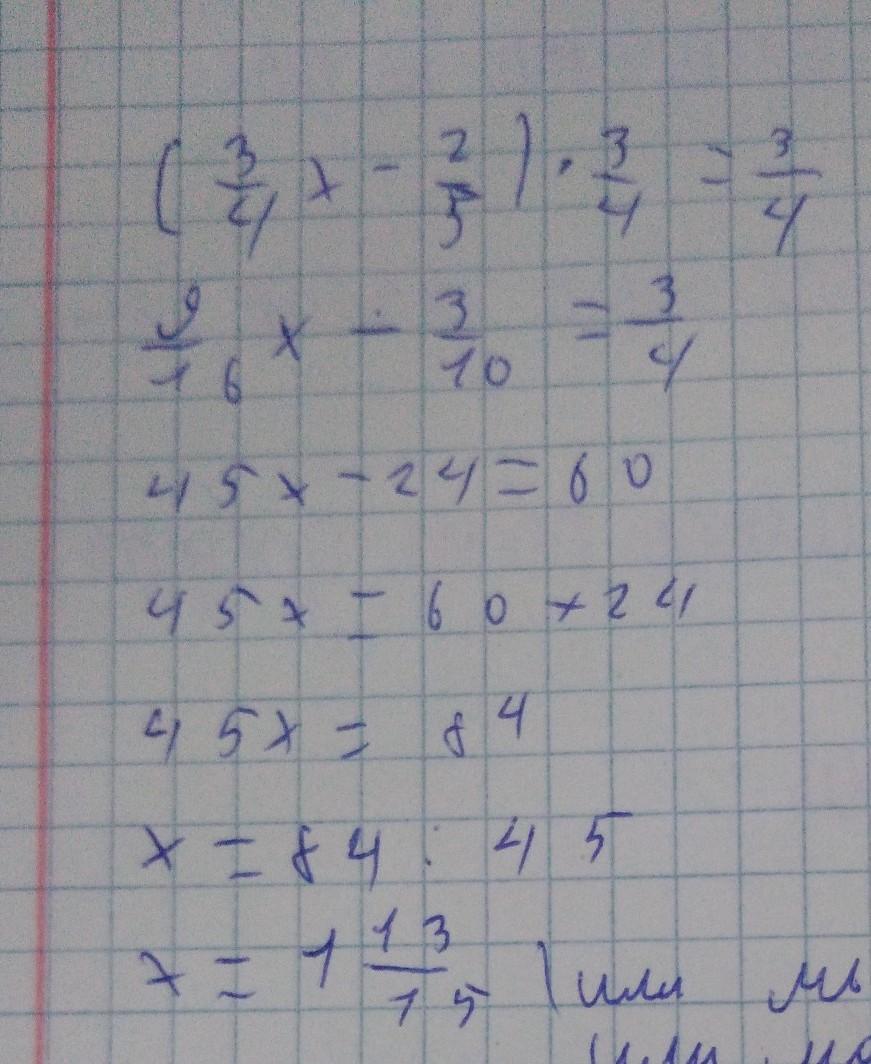 ( 3/4 x - 2/5 ) · 3/4 = 3/4
9/16 x - 3/10 = 3/4
45x - 24 = 60
45x = 60 + 24
45x = 84
x = 84 : 45
x = 1 13/15 \ или
или